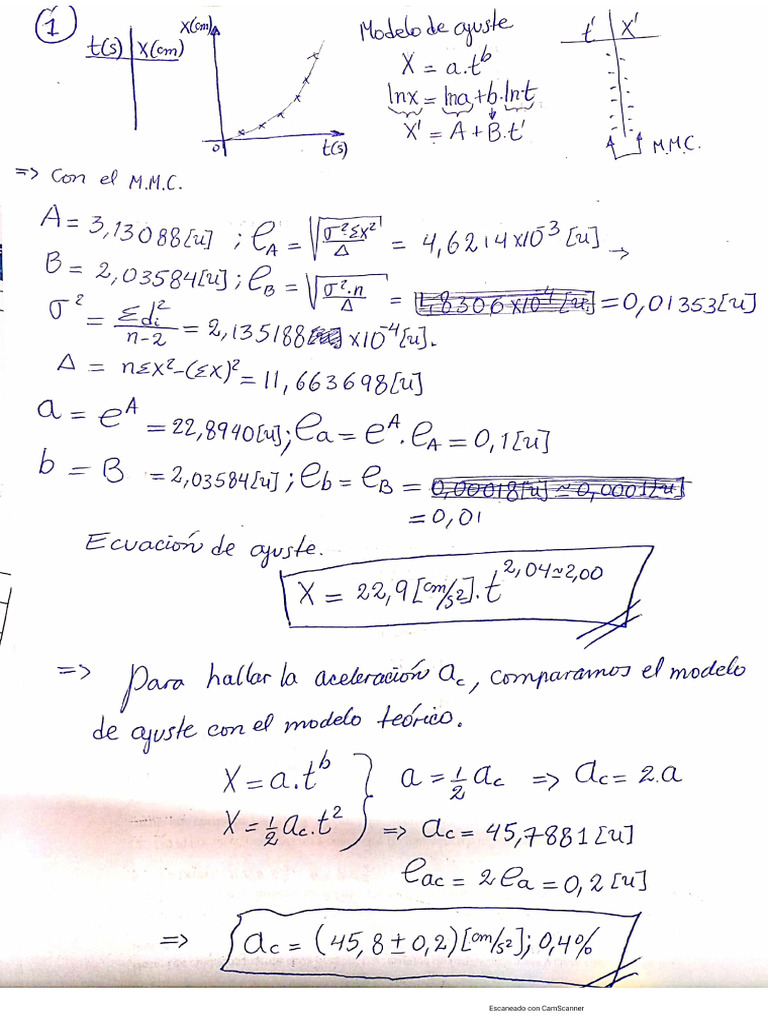 1
t(s) | X(cm)
X(cm)
0
t(s)
Modelo de ajuste
X = a.t^b
lnx = lna + b.lnt
X' = A + B.t'
t' | X'
M.M.C.
=> Con el M.M.C.
A = 3,13088[u] ; e_A = √(σ²Σx²/Δ) = 4,6214×10^-3 [u] →
B = 2,03584[u] ; e_B = √(σ².n/Δ) = 0,01353[u]
σ² = Σd_i²/(n-2) = 2,135188 ×10^-4[u].
Δ = nΣx²-(Σx)² = 11,663698[u]
a = e^A = 22,8940[u]; e_a = e^A.e_A = 0,1[u]
b = B = 2,03584[u] ; e_b = e_B = 0,00018[u] ≈ 0,0001[u]
= 0,01
Ecuación de ajuste.
X = 22,9[cm/s2].t^2,04≈2,00
=> Para hallar la aceleración a_c, comparamos el modelo
de ajuste con el modelo teórico.
X = a.t^b } a = 1/2 a_c => a_c = 2.a
X = 1/2 a_c.t² } => a_c = 45,7881[u]
e_ac = 2e_a = 0,2[u]
=> a_c = (45,8 ± 0,2)[cm/s2]; 0,4%
Escaneado con CamScanner